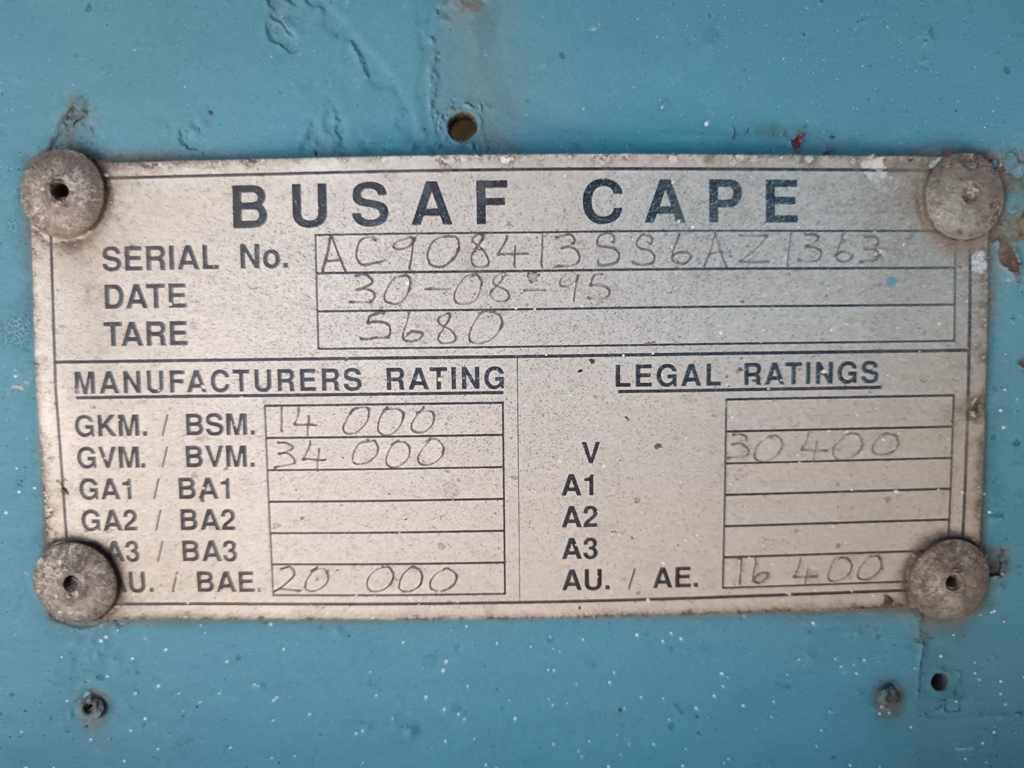 BUSAF CAPE
SERIAL No. AC908413SS6AZ1363
DATE 30-08-95
TARE 5680
MANUFACTURERS RATING
GKM. / BSM. 14 000
GVM. / BVM. 34 000
GA1 / BA1
GA2 / BA2
A3 / BA3
U. / BAE. 20 000
LEGAL RATINGS
V 30 400
A1
A2
A3
AU. / AE. 16 400